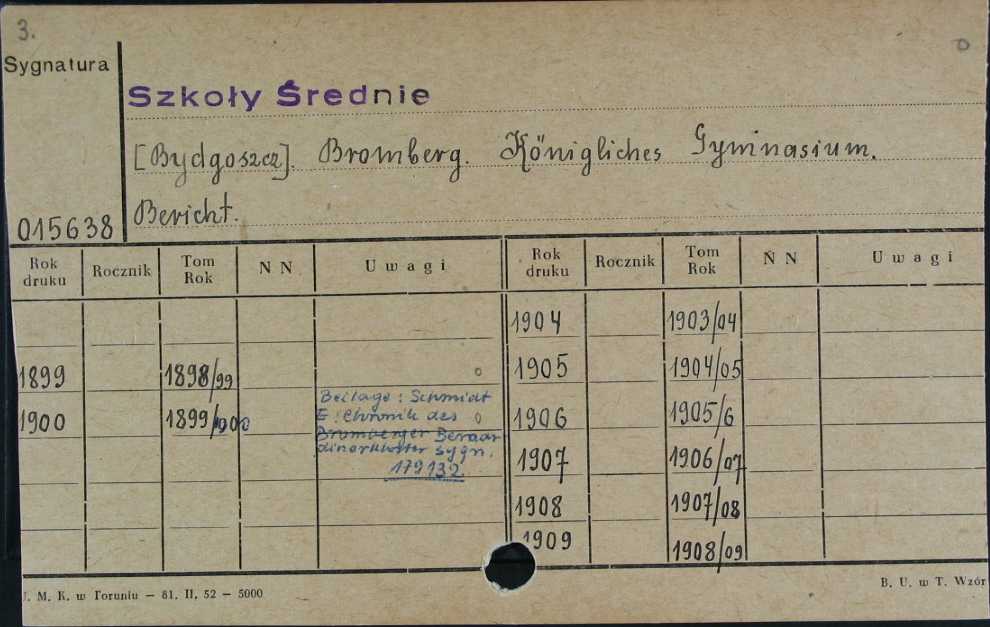 3.
Sygnatura
Szkoły Średnie
[Bydgoszcz]. Bromberg. Königliches Gymnasium.
015638 Bericht.
Rok druku Rocznik Tom Rok N N Uwagi Rok druku Rocznik Tom Rok N N Uwagi
1904 1903/04
1899 1898/99 1905 1904/05
1900 1899/900 1906 1905/6
Beilage: Schmidt
E: Chronik des
Bromberger Bernar
dinerkloster sygn.
179132
1907 1906/07
1908 1907/08
1909 1908/09
J. M. K. w Toruniu — 81. II. 52 — 5000
B. U. w T. Wzór